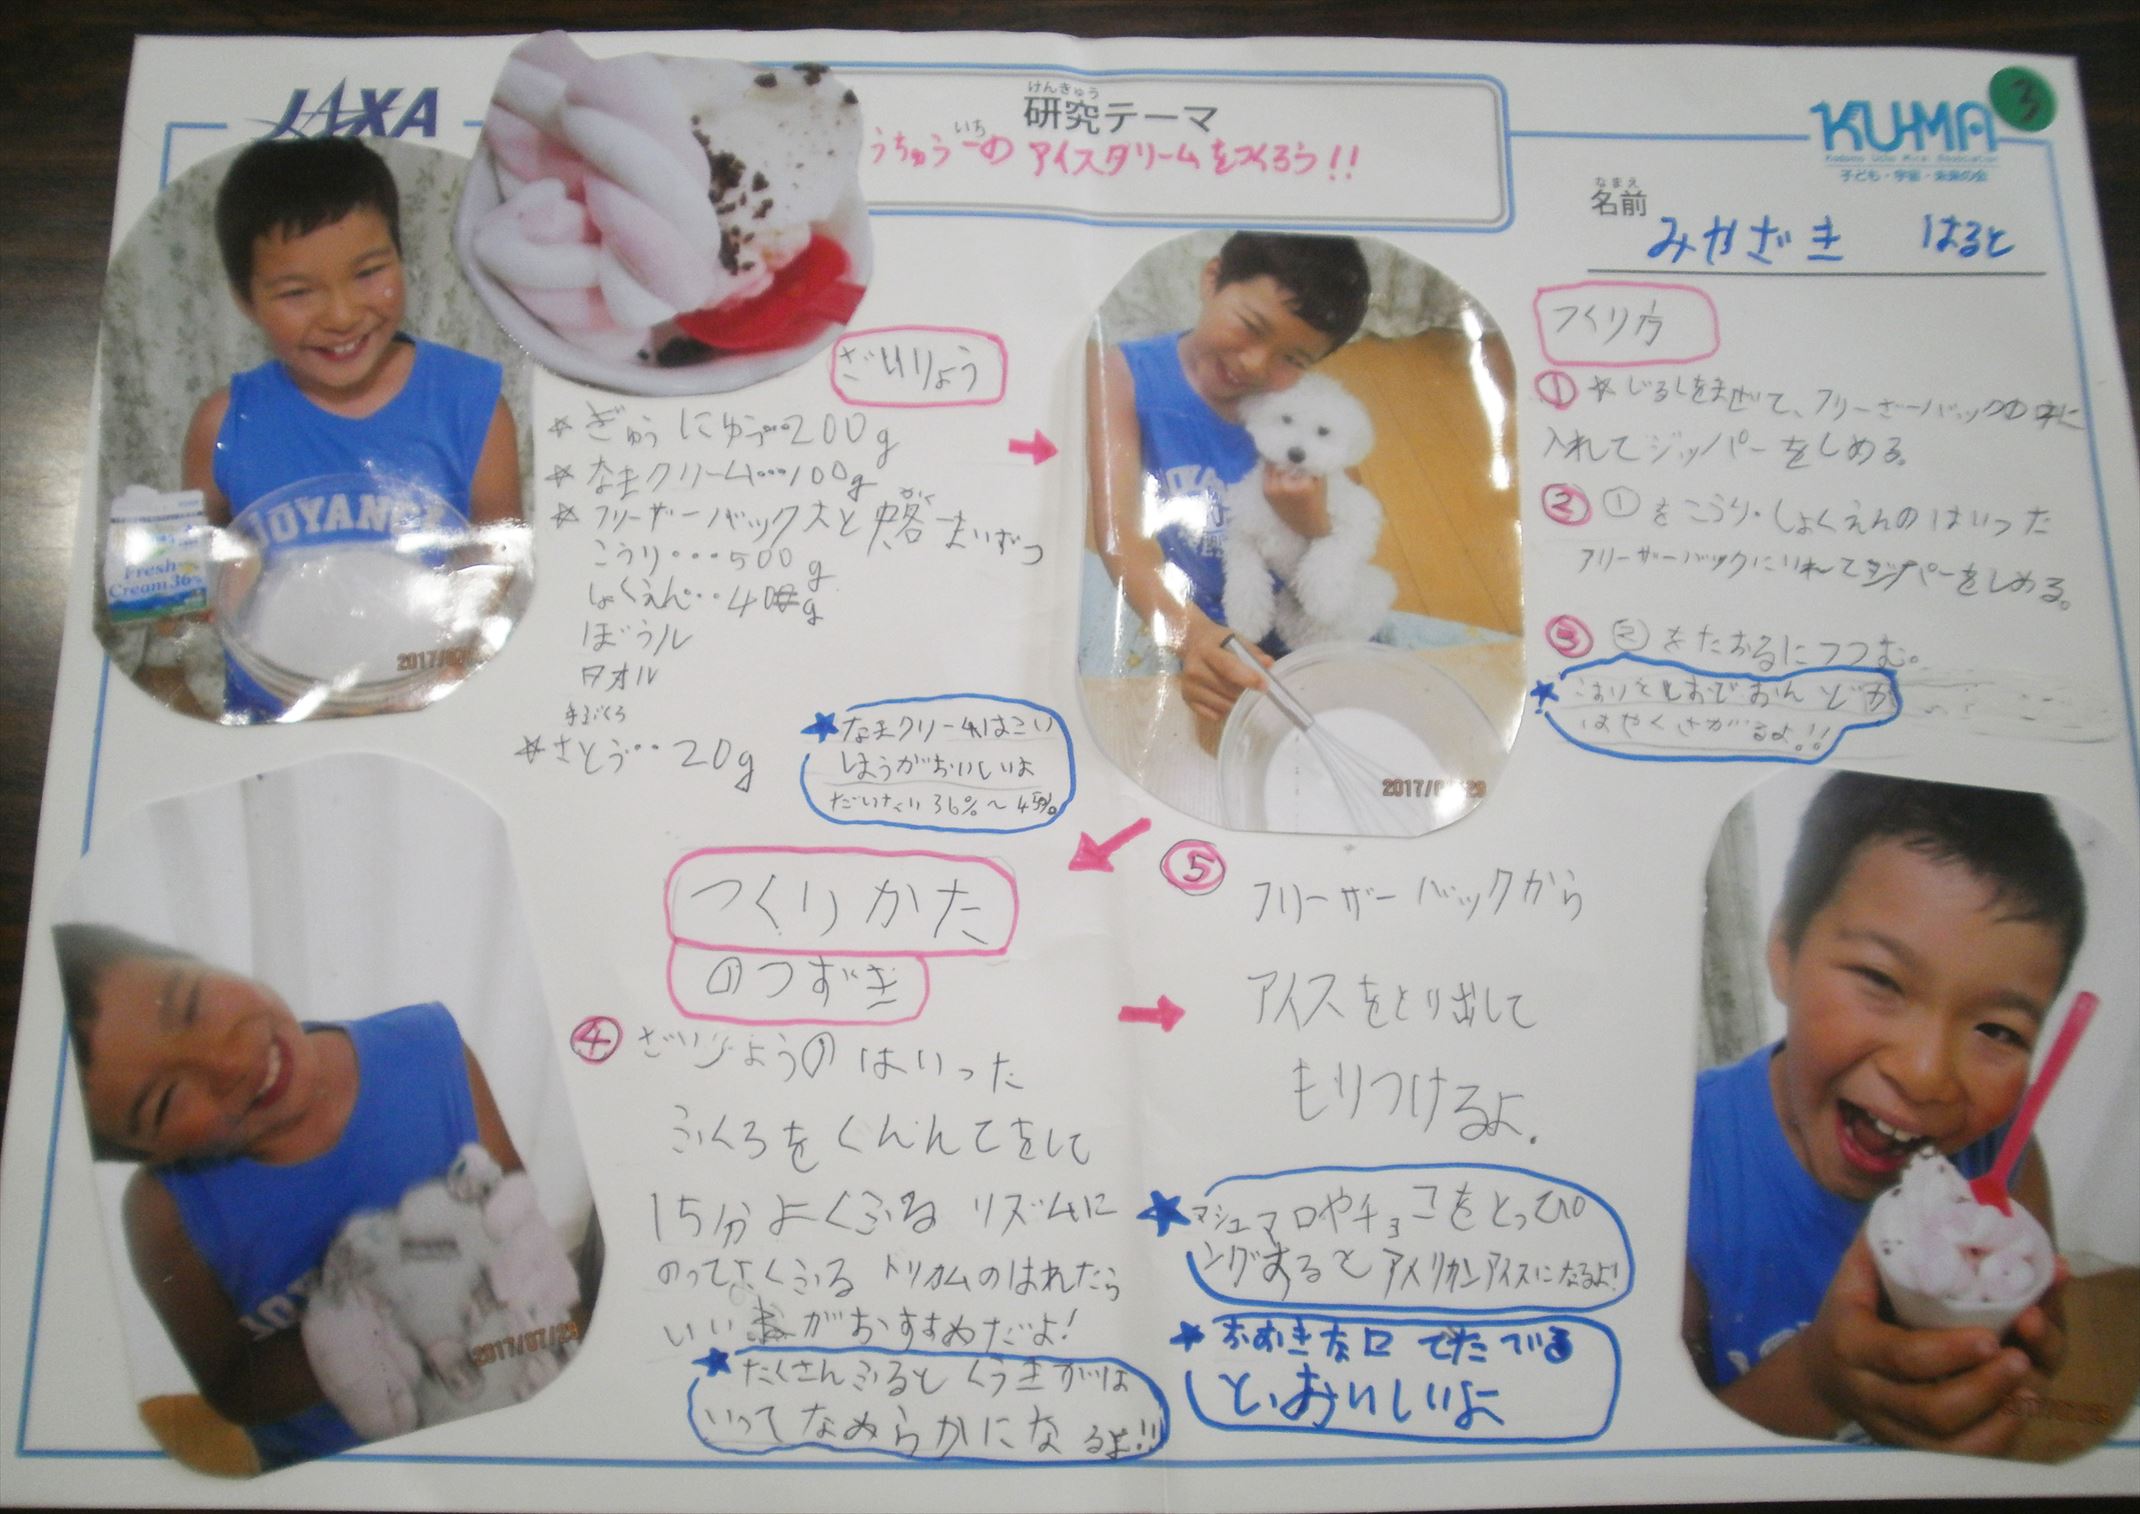 JAXA
けんきゅう
研究テーマ
いち
うちゅう一の アイスクリームをつくろう!!
KUMA
子ども・宇宙・未来の会
3
なまえ
名前
みやざき はると
ざいりょう
☆ぎゅうにゅう…200g
☆なまクリーム…100g
かく
☆フリーザーバック大と中各一まいずつ
こうり…500g
しょくえん…40g
ぼうル
タオル
手ぶくろ
☆さとう…20g
★なまクリームはこい
ほうがおいしいよ
だいたい36%〜45%
Fresh
Cream36%
つくり方
① ☆じるしをまぜて、フリーザーバックの中に
入れてジッパーをしめる。
② ①をこうり・しょくえんのはいった
フリーザーバックにいれてジパーをしめる。
③ ②をたおるにつつむ。
★こおりとしおでおんどが
はやくさがるよ!!
つくりかた
のつずき
④ ざいりょうのはいった
ふくろを
15分よくふる リズムに
のってよくふる ドリカムのはれたら
いいねがおすすめだよ!
★たくさんふるとくうきがは
いってなめらかになるよ!!
⑤ フリーザーバックから
アイスをとり出して
もりつけるよ.
★マシュマロやチョコをとっぴ
ングするとアメリカンアイスになるよ!
★おおきな口でたべる
といおいしいよ
2017/07/29